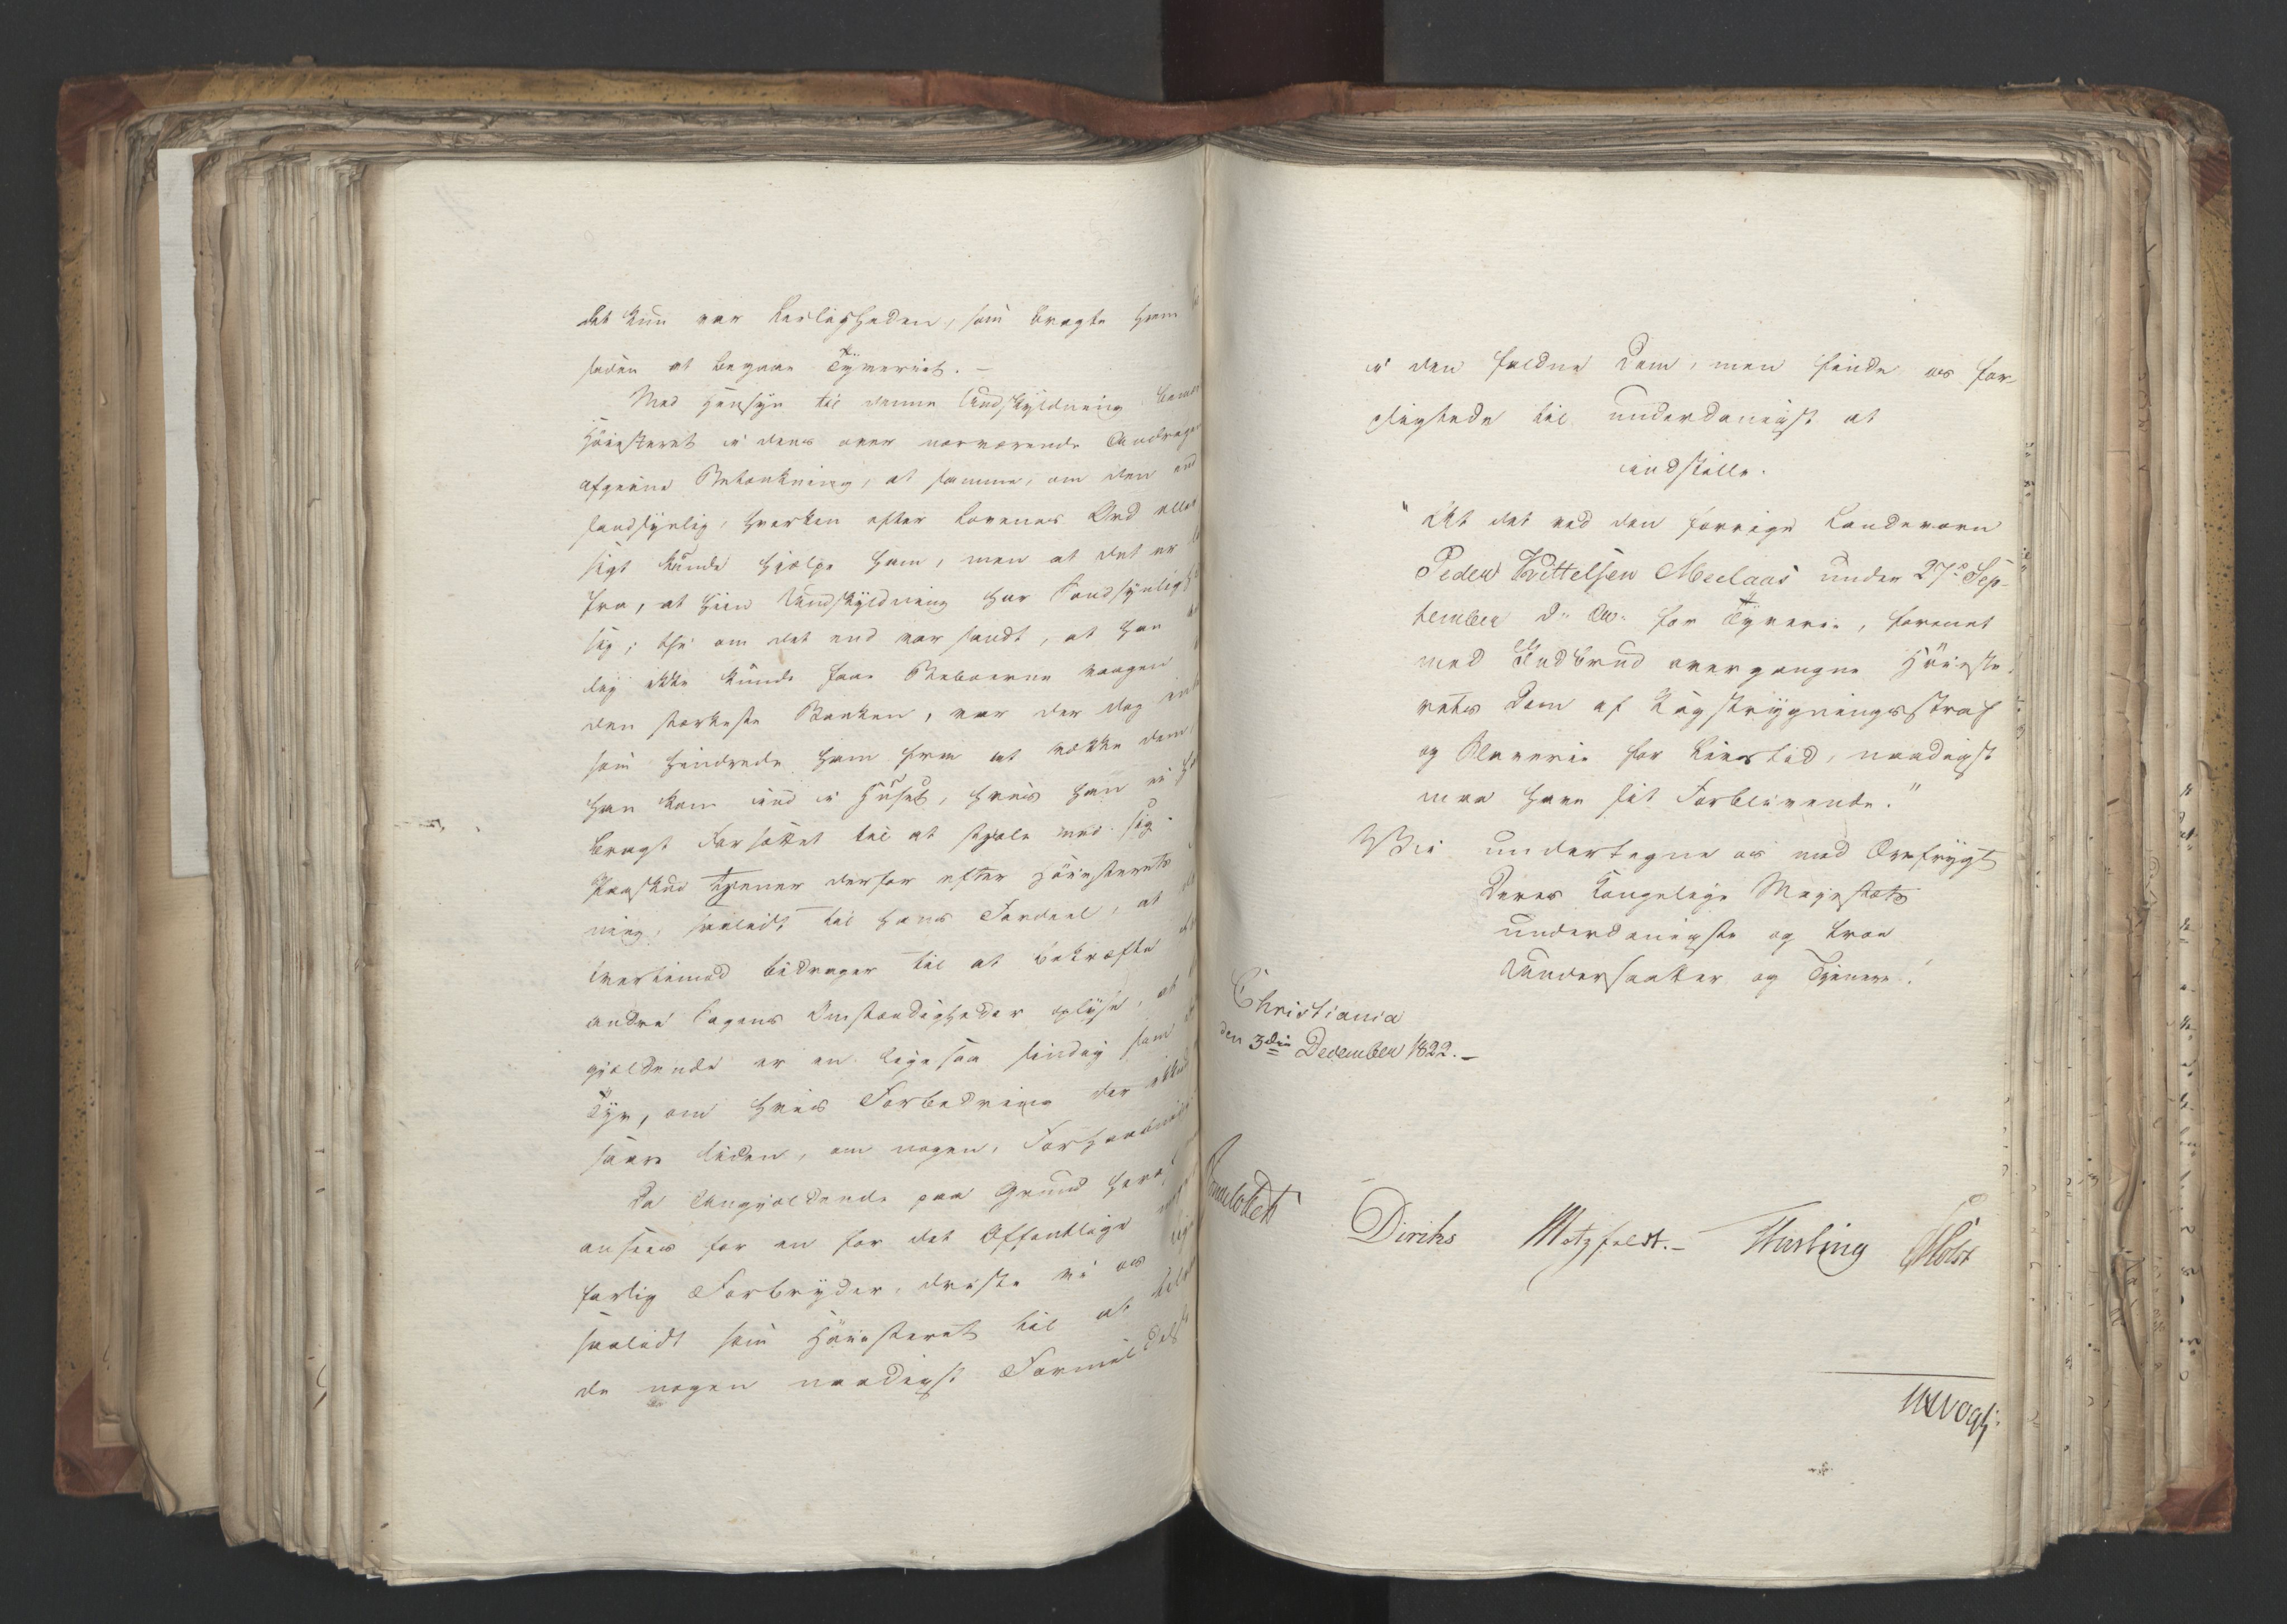 det kun var Leiligheden, som bragte ham
siden at begaae Tyveriet. –
Med Hensyn til denne Undskyldning
Høiesteret i dens over nærværende Andragende
afgivne Betænkning, at samme, om den end
sandsynlig, hverken efter Lovenes Ord eller
sigt kunde hjælpe ham, men at det er
fra, at hiin Undskyldning har Sandsynlighed
sig; thi om det end var sandt, at han
dog ikke kunde faae Beboerne vaagen
den stærkeste Banken, var der dog
som hindrede ham fra at vække dem,
han kom ind i Huset, hvis han ei
bragt Forsættet til at stjæle med sig.
Paaskud tjener derfor efter Høiesterets
ning, saalidt til hans Fordeel, at
tvertimod bidrager til at bekræfte
andre Sagens Omstændigheder oplyse, at
gjældende er en ligesaa sindig som
Tyv, om hvis Forbedring der ikke
være liden, om nogen, Forhaabning
Da Angjældende paa Grund heraf
ansees for en for det Offentlige
farlig Forbryder, driste vi os
saalidt som Høiesteret til at
de nogen naadigst Formildelse
i den faldne Dom, men finde os for-
pligtede til underdanigst at
indstille.
"At det ved den forrige Landeværn
Peder Kittelsen Meelaas under 27de Sep-
tember d. A. for Tyverie, forenet
med Indbrud overgangne Høieste-
rets Dom af Kagstrygningsstraf
og Slaverie for Livstid, naadigst
maa have sit Forblivende."
Vi undertegne os med Ærefrygt
Deres Kongelige Majestæts
underdanigste og troe
Undersaatter og Tjenere.
Christiania
den 3die December 1822. –
Sommerfeldt
Diriks Motzfeldt. – Krebs Holst
Vogt